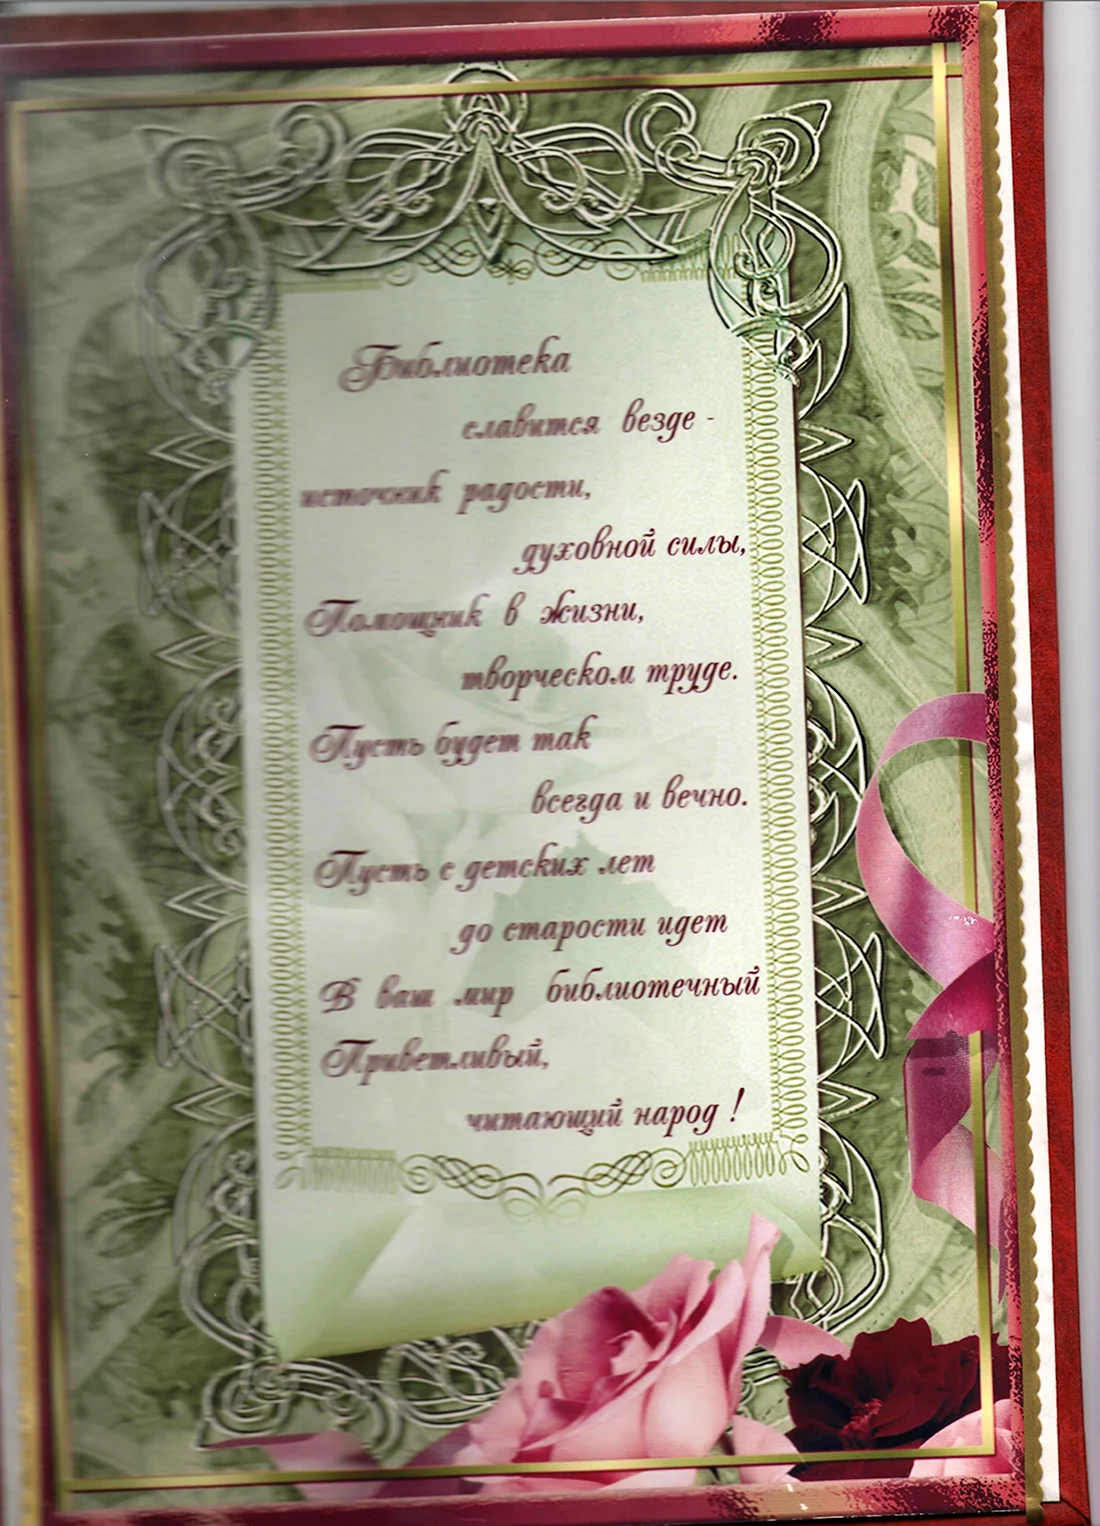 Библиотека
славится везде -
источник радости,
духовной силы,
Помощник в жизни,
творческом труде.
Пусть будет так
всегда и вечно.
Пусть с детских лет
до старости идет
В ваш мир библиотечный
Приветливый,
читающий народ !